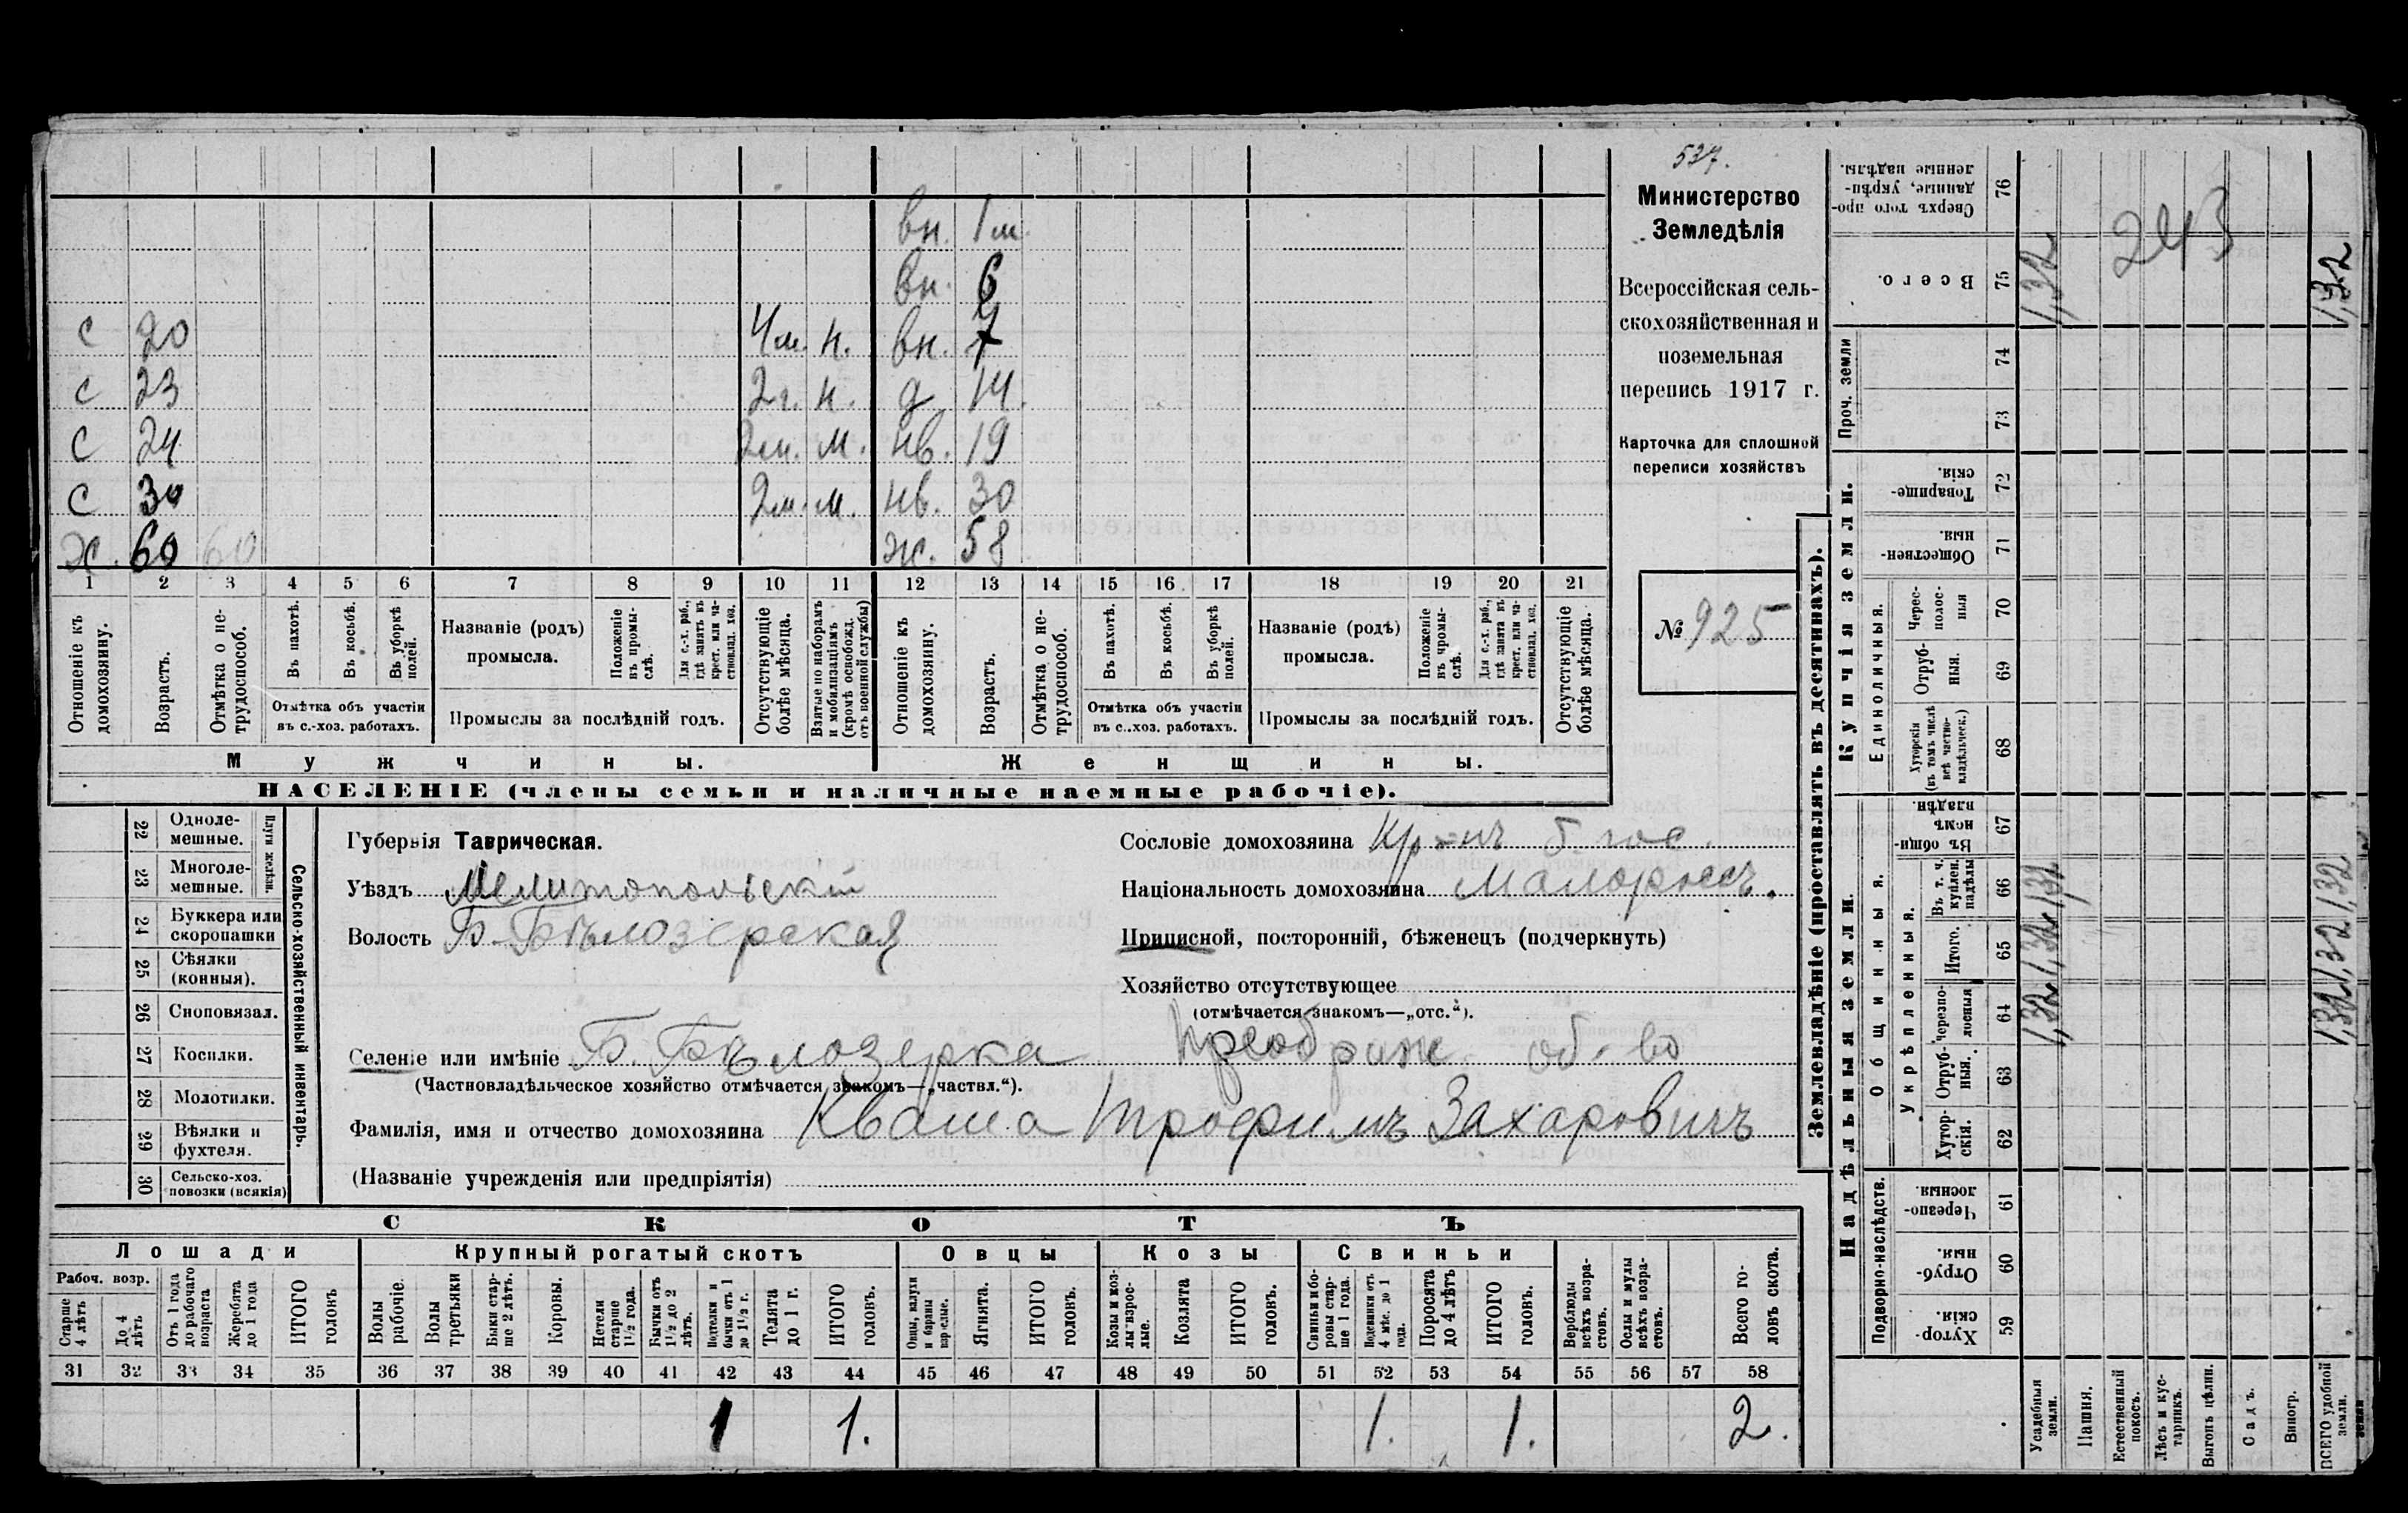 537.
Министерство
Земледѣлія
Всероссійская сель-
скохозяйственная и
поземельная
перепись 1917 г.
Карточка для сплошной
переписи хозяйствъ
№ 925
вн. 1м.
вн. 6
с 20 4м. н. вн. 7
с 23 2г. н. д. 14.
с 24 2м. м. нв. 19
с 30 2м. м. нв. 30
х. 60 60 ж. 58
1 2 3 4 5 6 7 8 9 10 11 12 13 14 15 16 17 18 19 20 21
Отношеніе къ домохозяину.
Возрастъ.
Отмѣтка о не-трудоспособ.
Въ пахотѣ.
Въ косьбѣ.
Въ уборкѣ полей.
Отмѣтка объ участіи
въ с.-хоз. работахъ.
Названіе (родъ)
промысла.
Положеніе въ промы-слѣ.
Для с.-х. раб., гдѣ занятъ въ крест. или ча-стновлад. хоз.
Промыслы за послѣдній годъ.
Отсутствующіе болѣе мѣсяца.
Взятые по наборамъ и мобилизаціямъ (кромѣ освобожд. отъ военной службы)
Отношеніе къ домохозяину.
Возрастъ.
Отмѣтка о не-трудоспособ.
Въ пахотѣ.
Въ косьбѣ.
Въ уборкѣ полей.
Отмѣтка объ участіи
въ с..хоз. работахъ.
Названіе (родъ)
промысла.
Положеніе въ промы-слѣ.
Для с.-х. раб., гдѣ занята въ крест. или ча-стновлад. хоз.
Промыслы за послѣдній годъ.
Отсутствующіе болѣе мѣсяца.
Мужчины. Женщины.
НАСЕЛЕНІЕ (члены семьи и наличные наемные рабочіе).
Сельско-хозяйственный инвентарь.
Плуги желѣзн.
22 Одноле-мешные.
23 Многоле-мешные.
24 Буккера или скоропашки
25 Сѣялки (конныя).
26 Сноповязал.
27 Косилки.
28 Молотилки.
29 Вѣялки и фухтеля.
30 Сельско-хоз. повозки (всякія)
Губернія Таврическая.
Уѣздъ Мелитопольскій
Волость Б. Бѣлозерская
Сословіе домохозяина Кр-нъ б. гос.
Національность домохозяина Малороссъ.
Приписной, посторонній, бѣженецъ (подчеркнуть)
Хозяйство отсутствующее
(отмѣчается знакомъ—„отс.“).
Селеніе или имѣніе Б. Бѣлозерка Преображ. об-во
(Частновладѣльческое хозяйство отмѣчается знакомъ—„частвл.“).
Фамилія, имя и отчество домохозяина Кваша Трофимъ Захаровичъ
(Названіе учрежденія или предпріятія)
СКОТЪ
Лошади Крупный рогатый скотъ Овцы Козы Свиньи
Рабоч. возр.
Старше 4 лѣтъ
До 4 лѣтъ
Отъ 1 года до рабочаго возраста
Жеребята до 1 года
ИТОГО головъ
Волы рабочіе.
Волы третьяки
Быки стар-ше 2 лѣтъ.
Коровы.
Нетели старше 1½ года.
Бычки отъ 1½ до 2 лѣтъ.
Подтелки и бычки отъ 1 до 1½ г.
Телята до 1 г.
ИТОГО головъ.
Овцы, валухи и бараны взрослые.
Ягнята.
ИТОГО головъ.
Козы и коз-лы взрос-лые.
Козлята
ИТОГО головъ.
Свиньи и бо-ровы стар-ше 1 года.
Подсвинки отъ 4 мѣс. до 1 года.
Поросята до 4 лѣтъ
ИТОГО головъ.
Верблюды всѣхъ возра-стовъ.
Ослы и мулы всѣхъ возра-стовъ.
Всего го-ловъ скота.
31 32 33 34 35 36 37 38 39 40 41 42 43 44 45 46 47 48 49 50 51 52 53 54 55 56 57 58
1 1. 1. 1. 2.
Землевладѣніе (проставлять въ десятинахъ).
Надѣльныя земли. Купчія земли.
Проч. земли
Подворно-наслѣдств.
Общинныя.
Укрѣпленныя.
Единоличныя.
76 Сверхъ того про-данные, укрѣп-ленные надѣлы.
75 Всего.
74
73
72 Товарище-скія.
71 Обществен-ныя.
70 Черес-полос-ныя
69 Отруб-ныя.
68 Хуторскія (въ томъ числѣ всѣ частно-владѣльческ.)
67 Въ общин-номъ владѣн.
66 Въ т. ч. куплен. надѣлы
65 Итого.
64 Черезпо-лосныя
63 Отруб-ныя.
62 Хутор-скія.
61 Черезпо-лосныя.
60 Отруб-ныя.
59 Хутор-скія.
243
1,32 1,32
1,32 1,32 1,32
1,32 1,32 1,32
Усадебныя земли.
Пашня.
Естественный покосъ.
Лѣсъ и кус-тарникъ.
Выгонъ цѣлин.
Садъ.
Виногр.
ВСЕГО удобной земли.